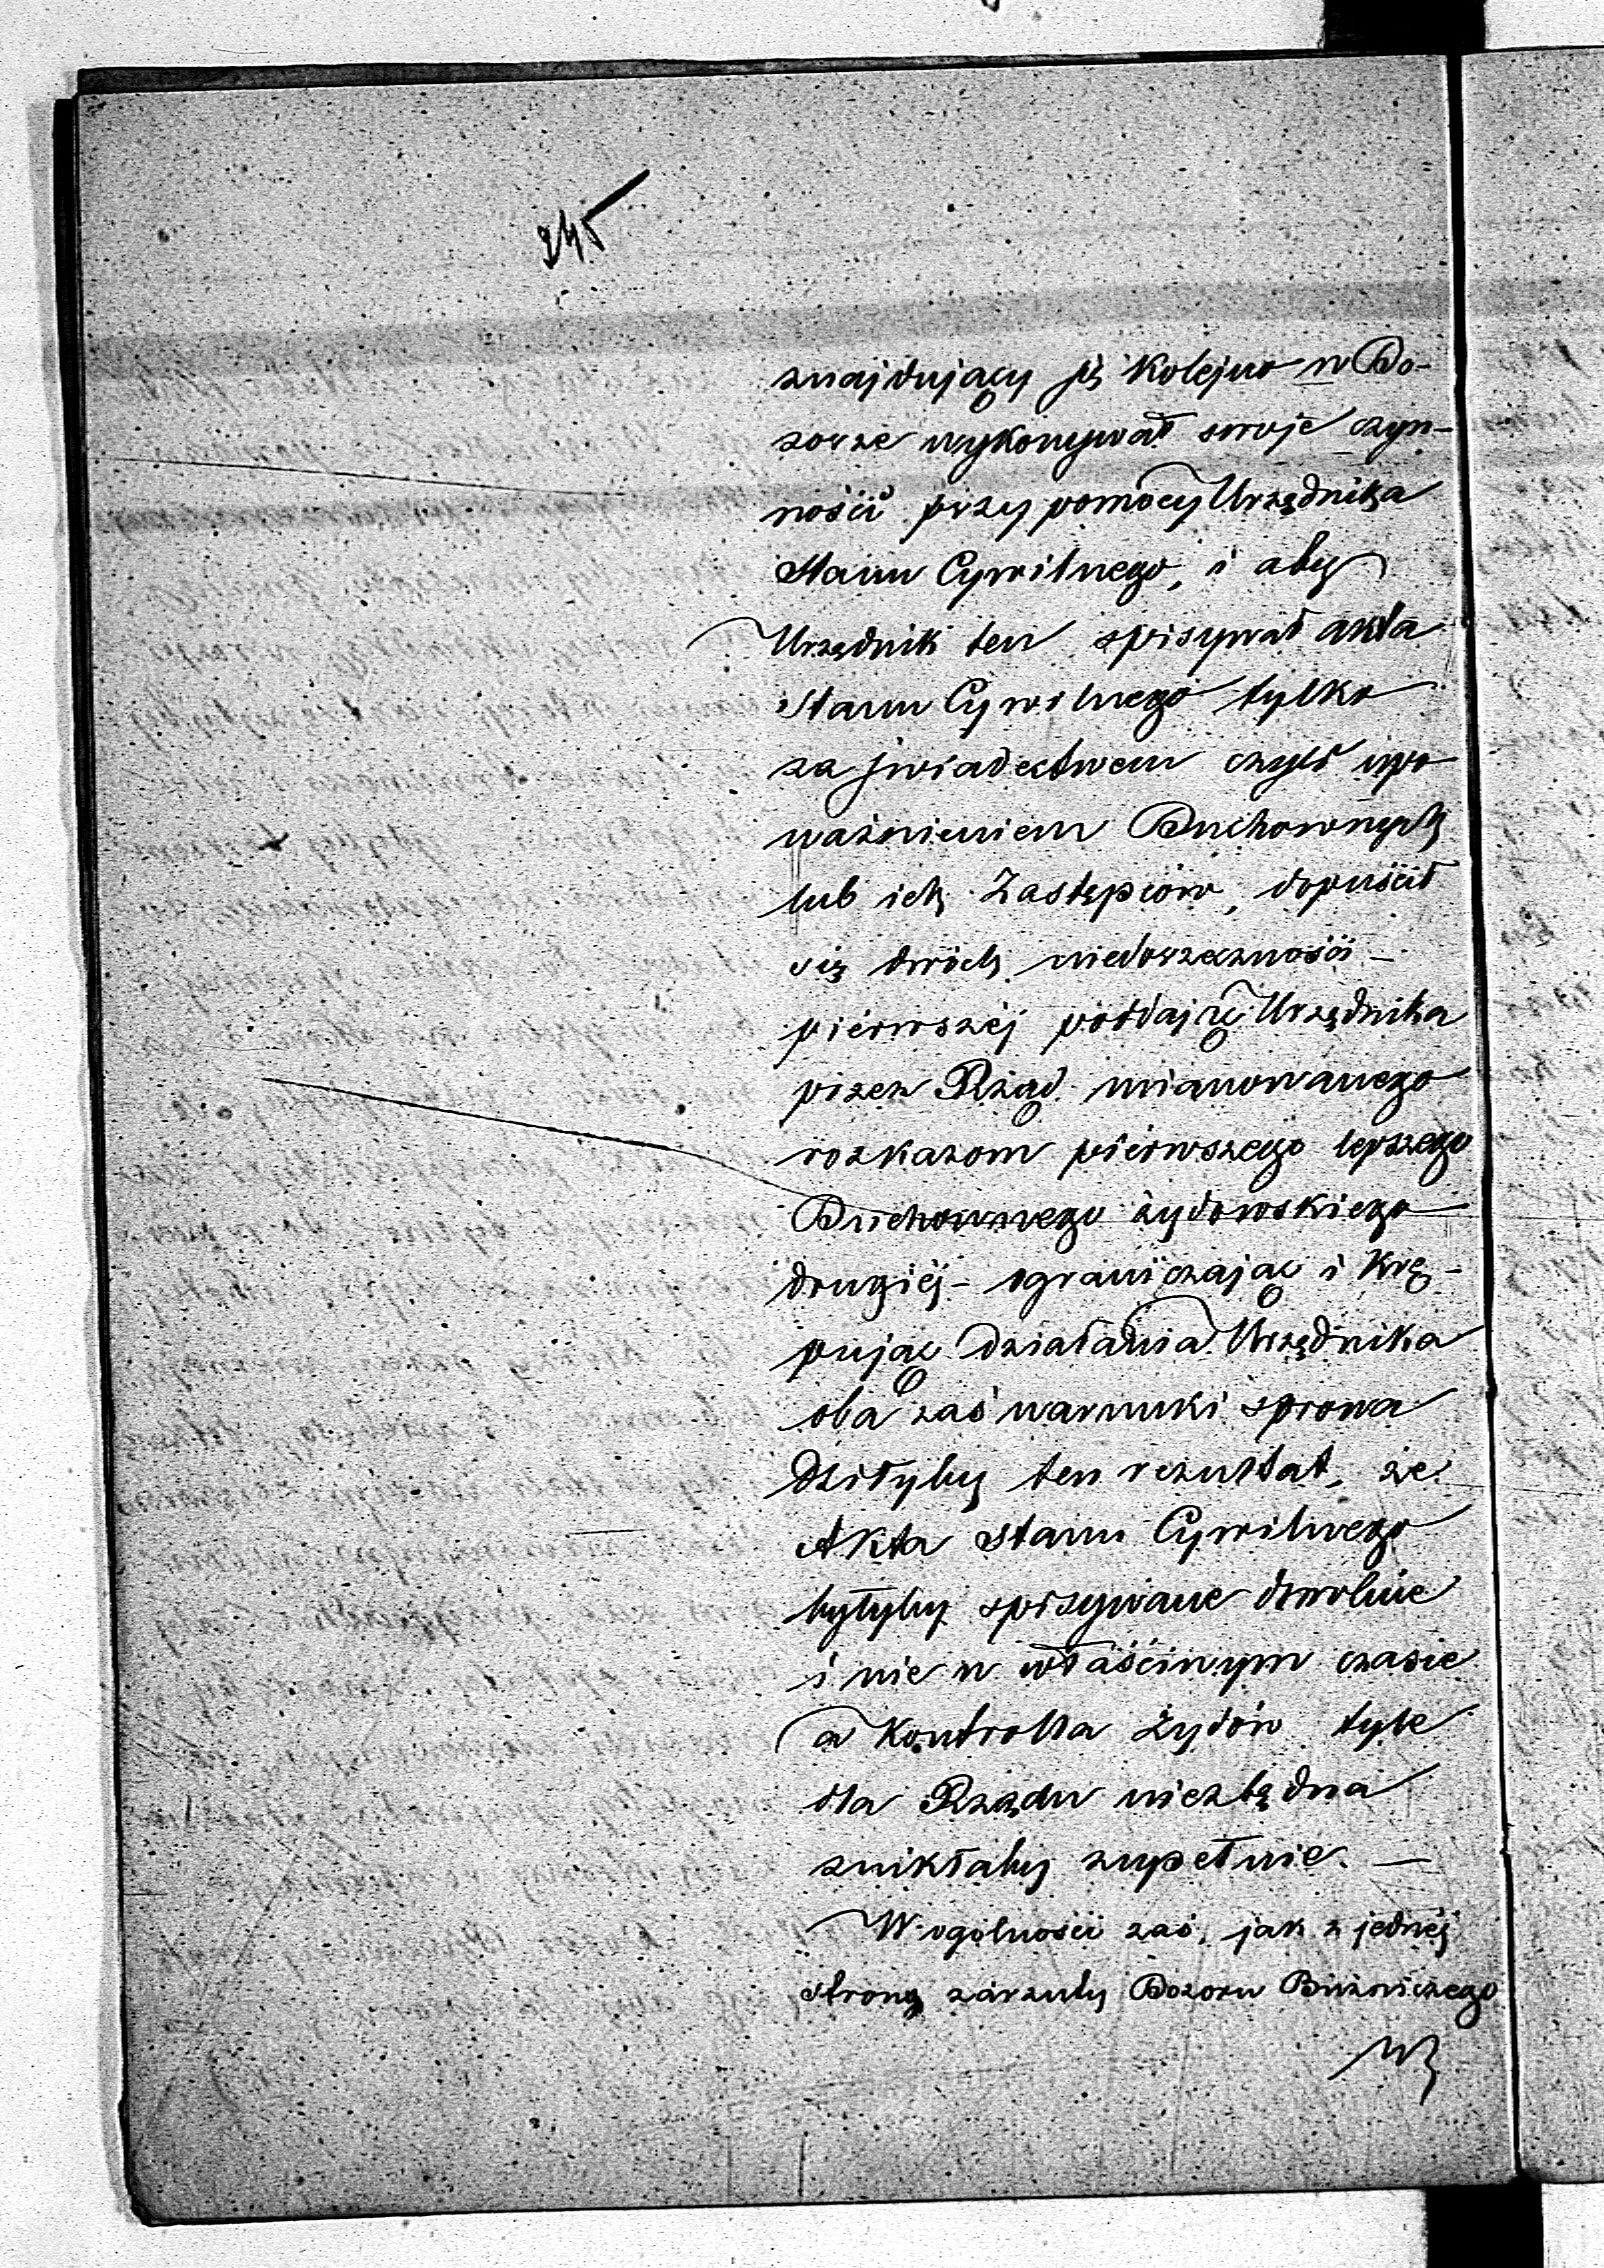 245
znajdujący się kolejno w Do-
zorze wykonywał swoje czyn-
ności przy pomocy Urzędnika
Stanu Cywilnego, i aby
Urzędnik ten spisywał akta
Stanu Cywilnego tylko
za świadectwem czyli upo
ważnieniem Duchownych
lub ich Zastępców, dopuścił
się dwóch niedorzeczności –
pierwszéj poddając Urzędnika
przez Rząd mianowanego
rozkazom pierwszego lepszego
Duchownego żydowskiego
drugiéj – ograniczając i krę-
pując działania Urzędnika
oba zaś warunki sprowa
dziłyby ten rezultat, że
Akta Stanu Cywilnego
byłyby spisywane dowolnie
i nie w właściwym czasie
a kontrolla Żydów tyle
dla Rządu niezbędna
znikłaby zupełnie. —
W ogólności zaś, jak z jednéj
strony zarzuty Dozoru Bużniczego